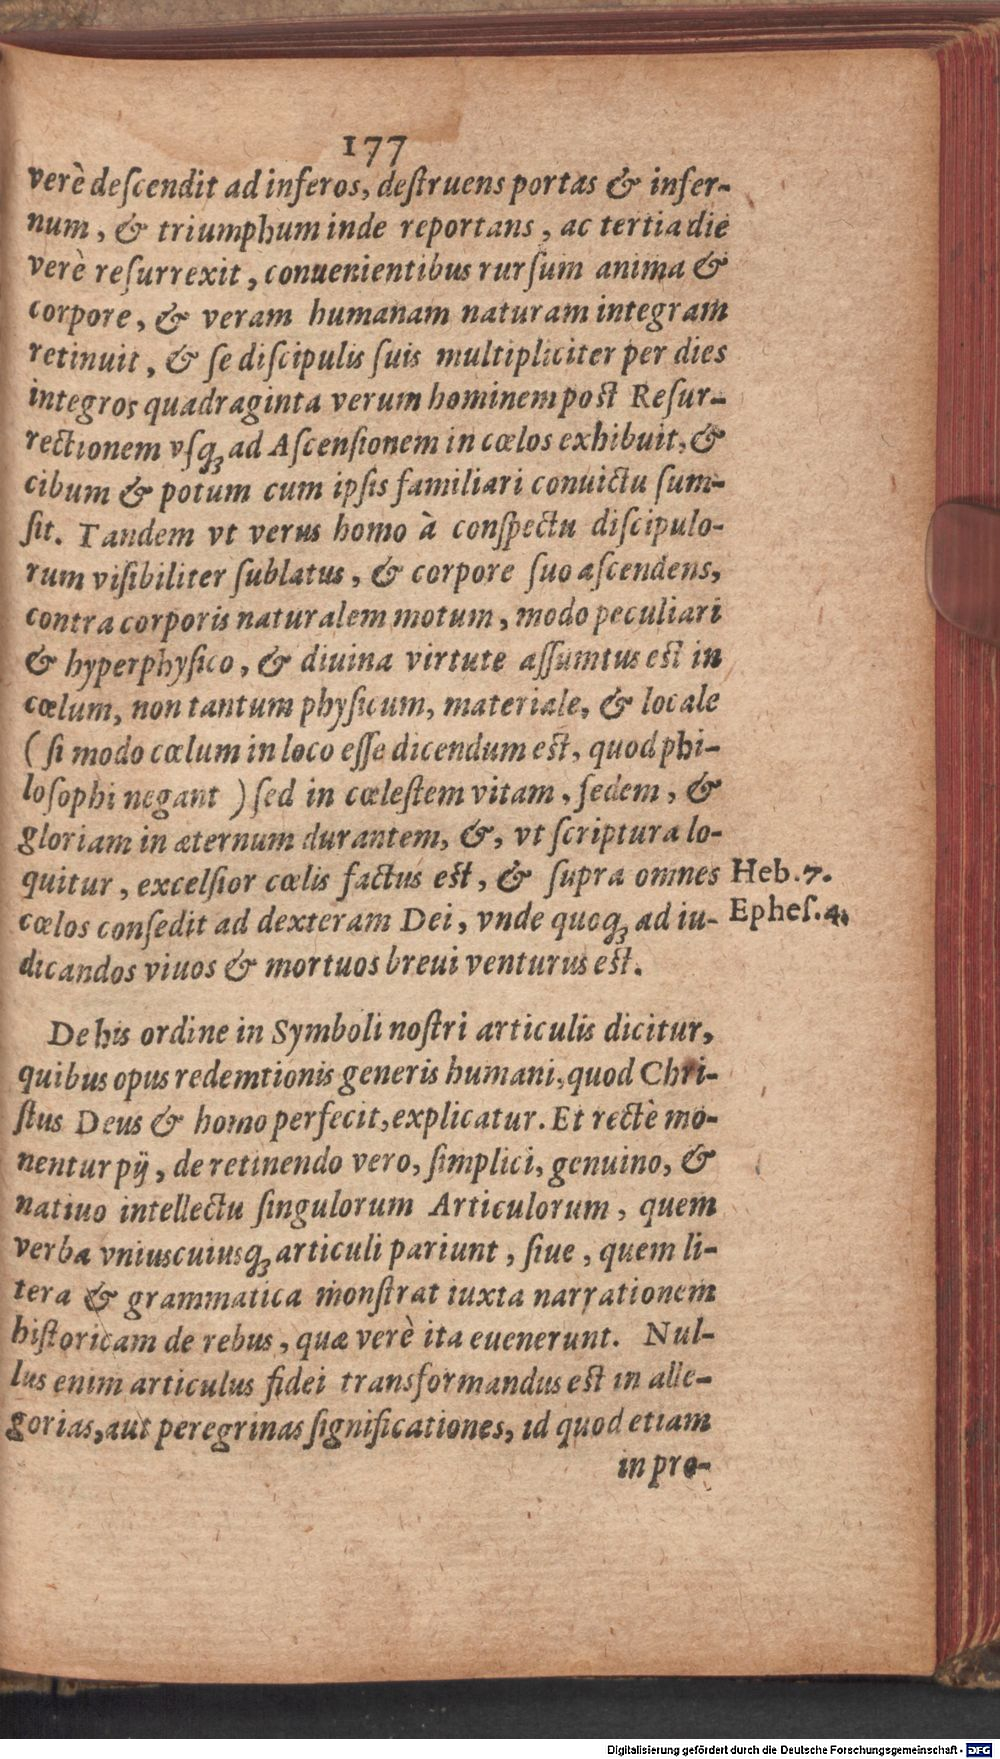 177
verè deſcendit ad inferos, deſtruens portas & infer-
num, & triumphum inde reportans, ac tertia die
verè reſurrexit, conuenientibus rurſum anima &
corpore, & veram humanam naturam integram
retinuit, & ſe diſcipulis ſuis multipliciter per dies
integros quadraginta verum hominem post Reſur-
rectionem vſq́ꝫ ad Aſcenſionem in cœlos exhibuit, &
cibum & potum cum ipſis familiari conuictu ſum-
ſit. Tandem vt verus homo à conſpectu diſcipulo-
rum viſibiliter ſublatus, & corpore ſuo aſcendens,
contra corporis naturalem motum, modo peculiari
& hyperphyſico, & diuina virtute aſſumtus est in
cœlum, non tantum phyſicum, materiale, & locale
( ſi modo cœlum in loco eſſe dicendum est, quod phi-
loſophi negant ) ſed in cœleſtem vitam, ſedem, &
gloriam in æternum durantem, &, vt ſcriptura lo-
quitur, excelſior cœlis factus est, & ſupra omnes Heb. 7.
cœlos conſedit ad dexteram Dei, vnde quoqꝫ ad iu- Epheſ. 4.
dicandos viuos & mortuos breui venturus est.
De his ordine in Symboli noſtri articulis dicitur,
quibus opus redemtionis generis humani, quod Chri-
ſtus Deus & homo perfecit, explicatur. Et rectè mo-
nentur pij, de retinendo vero, ſimplici, genuino, &
natiuo intellectu ſingulorum Articulorum, quem
verba vniuscuiusqꝫ articuli pariunt, ſiue, quem li-
tera & grammatica monſtrat iuxta narrationem
hiſtoricam de rebus, quæ verè ita euenerunt. Nul-
lus enim articulus fidei transformandus est in alle-
gorias, aut peregrinas ſignificationes, id quod etiam
in pro-
Digitalisierung gefördert durch die Deutsche Forschungsgemeinschaft - DFG